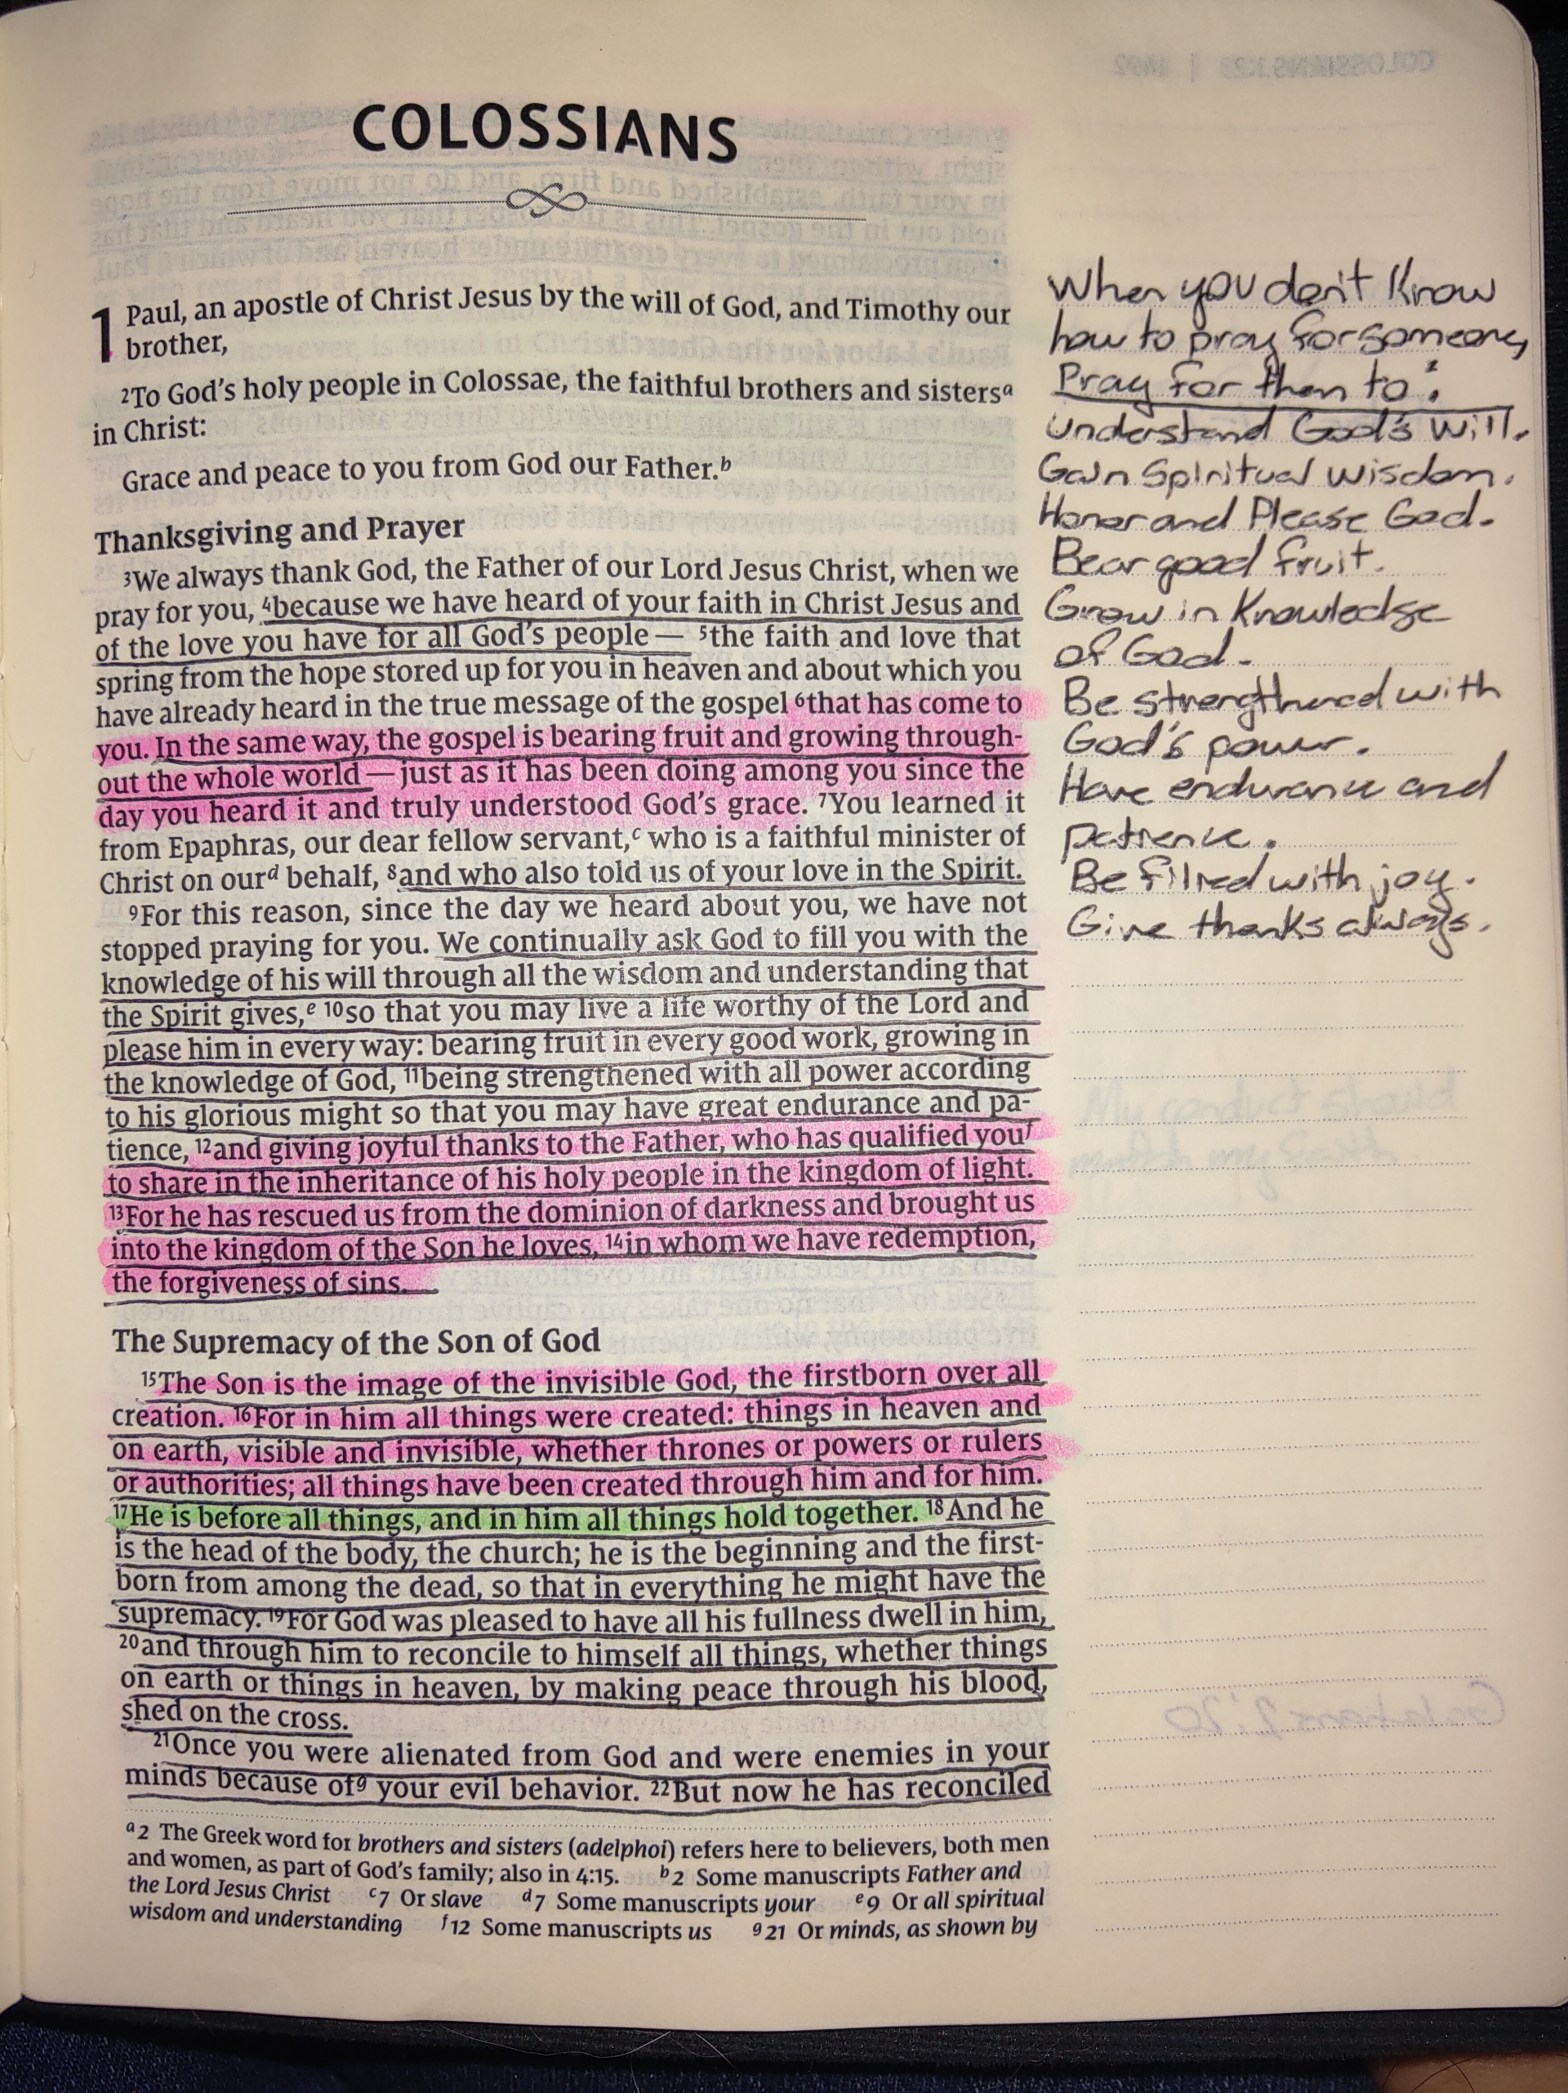 COLOSSIANS
1 Paul, an apostle of Christ Jesus by the will of God, and Timothy our
brother,
2To God's holy people in Colossae, the faithful brothers and sistersa
in Christ:
Grace and peace to you from God our Father.b
Thanksgiving and Prayer
3We always thank God, the Father of our Lord Jesus Christ, when we
pray for you, 4because we have heard of your faith in Christ Jesus and
of the love you have for all God's people— 5the faith and love that
spring from the hope stored up for you in heaven and about which you
have already heard in the true message of the gospel 6that has come to
you. In the same way, the gospel is bearing fruit and growing through-
out the whole world—just as it has been doing among you since the
day you heard it and truly understood God's grace. 7You learned it
from Epaphras, our dear fellow servant,c who is a faithful minister of
Christ on ourd behalf, 8and who also told us of your love in the Spirit.
9For this reason, since the day we heard about you, we have not
stopped praying for you. We continually ask God to fill you with the
knowledge of his will through all the wisdom and understanding that
the Spirit gives,e 10so that you may live a life worthy of the Lord and
please him in every way: bearing fruit in every good work, growing in
the knowledge of God, 11being strengthened with all power according
to his glorious might so that you may have great endurance and pa-
tience, 12and giving joyful thanks to the Father, who has qualified youf
to share in the inheritance of his holy people in the kingdom of light.
13For he has rescued us from the dominion of darkness and brought us
into the kingdom of the Son he loves, 14in whom we have redemption,
the forgiveness of sins.
The Supremacy of the Son of God
15The Son is the image of the invisible God, the firstborn over all
creation. 16For in him all things were created: things in heaven and
on earth, visible and invisible, whether thrones or powers or rulers
or authorities; all things have been created through him and for him.
17He is before all things, and in him all things hold together. 18And he
is the head of the body, the church; he is the beginning and the first-
born from among the dead, so that in everything he might have the
supremacy. 19For God was pleased to have all his fullness dwell in him,
20and through him to reconcile to himself all things, whether things
on earth or things in heaven, by making peace through his blood,
shed on the cross.
21Once you were alienated from God and were enemies in your
minds because ofg your evil behavior. 22But now he has reconciled
a2 The Greek word for brothers and sisters (adelphoi) refers here to believers, both men
and women, as part of God's family; also in 4:15. b2 Some manuscripts Father and
the Lord Jesus Christ c7 Or slave d7 Some manuscripts your e9 Or all spiritual
wisdom and understanding f12 Some manuscripts us g21 Or minds, as shown by
When you don't Know
how to pray for someone,
Pray for them to:
Understand God's will.
Gain Spiritual wisdom.
Honor and Please God.
Bear good fruit.
Grow in Knowledge
of God.
Be strengthened with
God's power.
Have endurance and
patience.
Be filled with joy.
Give thanks always.